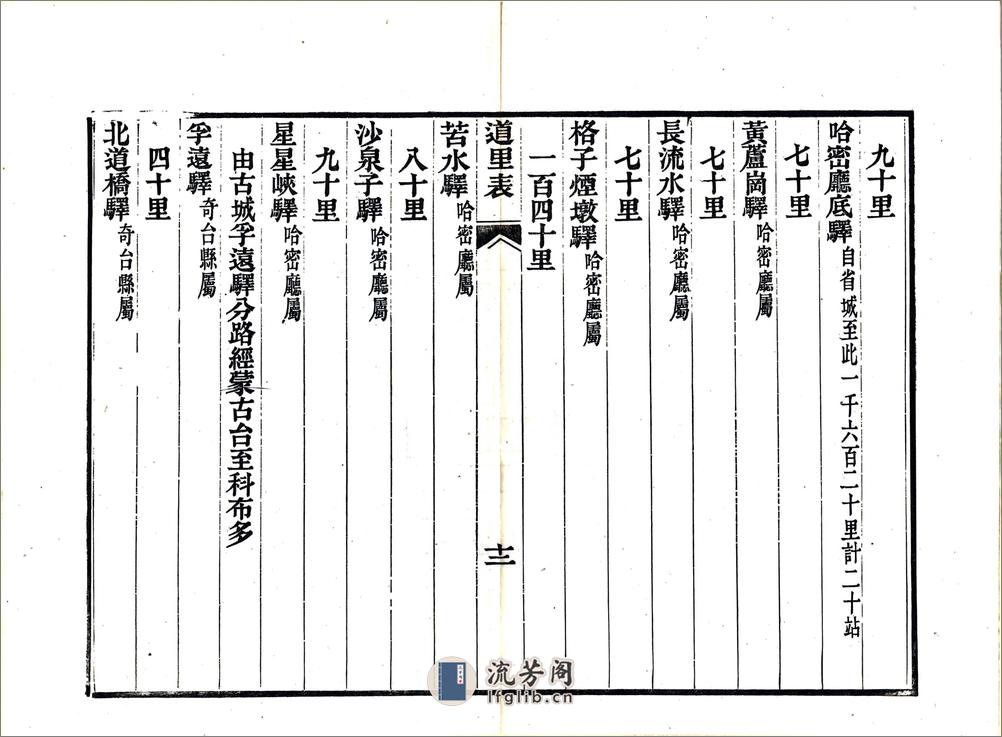 九十里
哈密廳底驛 自省城至此一千六百二十里計二十站
七十里
黃蘆崗驛 哈密廳屬
七十里
長流水驛 哈密廳屬
七十里
格子煙墩驛 哈密廳屬
一百四十里
道里表 十二
苦水驛 哈密廳屬
八十里
沙泉子驛 哈密廳屬
九十里
星星峽驛 哈密廳屬
由古城孚遠驛分路經蒙古台至科布多
孚遠驛 奇台縣屬
四十里
北道橋驛 奇台縣屬
流芳阁
lfglib.cn